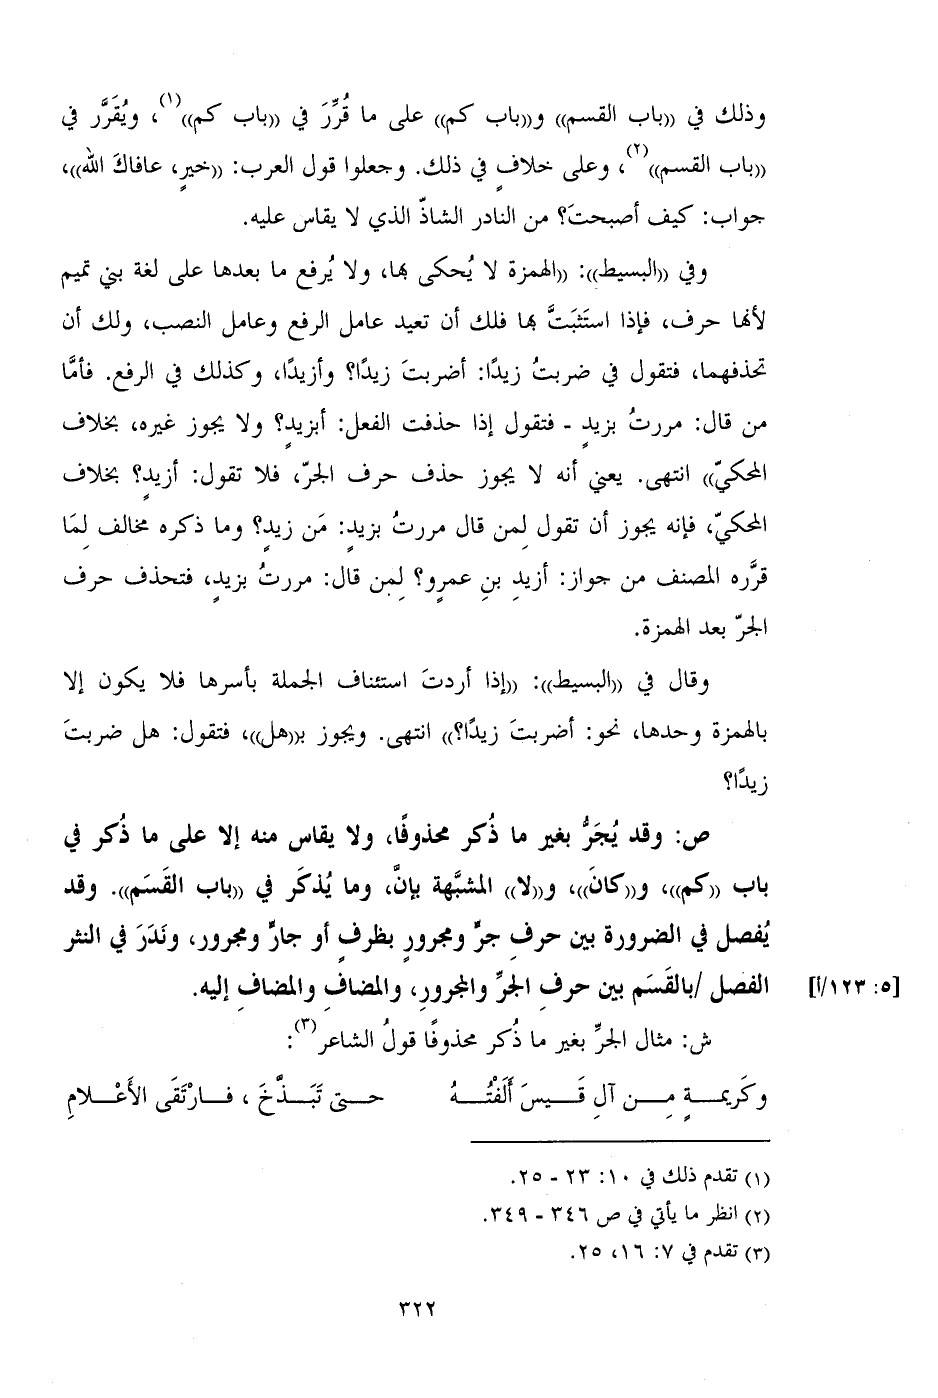 وذلك في ((باب القسم)) و((باب كم)) على ما قُرِّرَ في ((باب كم))(١)، ويُقَرَّر في
((باب القسم))(٢)، وعلى خلافٍ في ذلك. وجعلوا قول العرب: ((خيرٍ، عافاكَ الله))،
جواب: كيف أصبحتَ؟ من النادر الشاذّ الذي لا يقاس عليه.
وفي ((البسيط)): ((الهمزة لا يُحكى بها، ولا يُرفع ما بعدها على لغة بني تميم
لأنها حرف، فإذا استَثبَتَّ بها فلك أن تعيد عامل الرفع وعامل النصب، ولك أن
تحذفهما، فتقول في ضربتُ زيدًا: أضربتَ زيدًا؟ وأزيدًا، وكذلك في الرفع. فأمَّا
من قال: مررتُ بزيدٍ - فتقول إذا حذفت الفعل: أبزيدٍ؟ ولا يجوز غيره، بخلاف
المحكيّ)) انتهى. يعني أنه لا يجوز حذف حرف الجرّ، فلا تقول: أزيدٍ؟ بخلاف
المحكيّ، فإنه يجوز أن تقول لِمن قال مررتُ بزيدٍ: مَن زيدٍ؟ وما ذكره مخالف لِمَا
قرَّره المصنف من جواز: أزيدِ بنِ عمرٍو؟ لِمن قال: مررتُ بزيدٍ، فتحذف حرف
الجرّ بعد الهمزة.
وقال في ((البسيط)): ((إذا أردتَ استئناف الجملة بأسرها فلا يكون إلا
بالهمزة وحدها، نحو: أضربتَ زيدًا؟)) انتهى. ويجوز بـ((هل))، فتقول: هل ضربتَ
زيدًا؟
ص: وقد يُجَرُّ بغير ما ذُكر محذوفًا، ولا يقاس منه إلا على ما ذُكر في
باب ((كم))، و((كانَ))، و((لا)) المشبَّهة بإنَّ، وما يُذكَر في ((باب القَسَم)). وقد
يُفصل في الضرورة بين حرفِ جرٍّ ومجرورٍ بظرفٍ أو جارٍّ ومجرور، ونَدَرَ في النثر
الفصل /بالقَسَم بين حرفِ الجرِّ والمجرورِ، والمضافِ والمضافِ إليه. [٥: ١٢٣/أ]
ش: مثال الجرِّ بغير ما ذُكر محذوفًا قولُ الشاعر(٣):
وكَريمـــةٍ مـــن آلِ قَـــيسَ أَلَفْتُـــهُ حـــتى تَبَـــذَّخَ ، فـــارْتَقَى الأَعْـــلامِ
(١) تقدم ذلك في ١٠: ٢٣ - ٢٥.
(٢) انظر ما يأتي في ص ٣٤٦ - ٣٤٩.
(٣) تقدم في ٧: ١٦، ٢٥.
٣٢٢